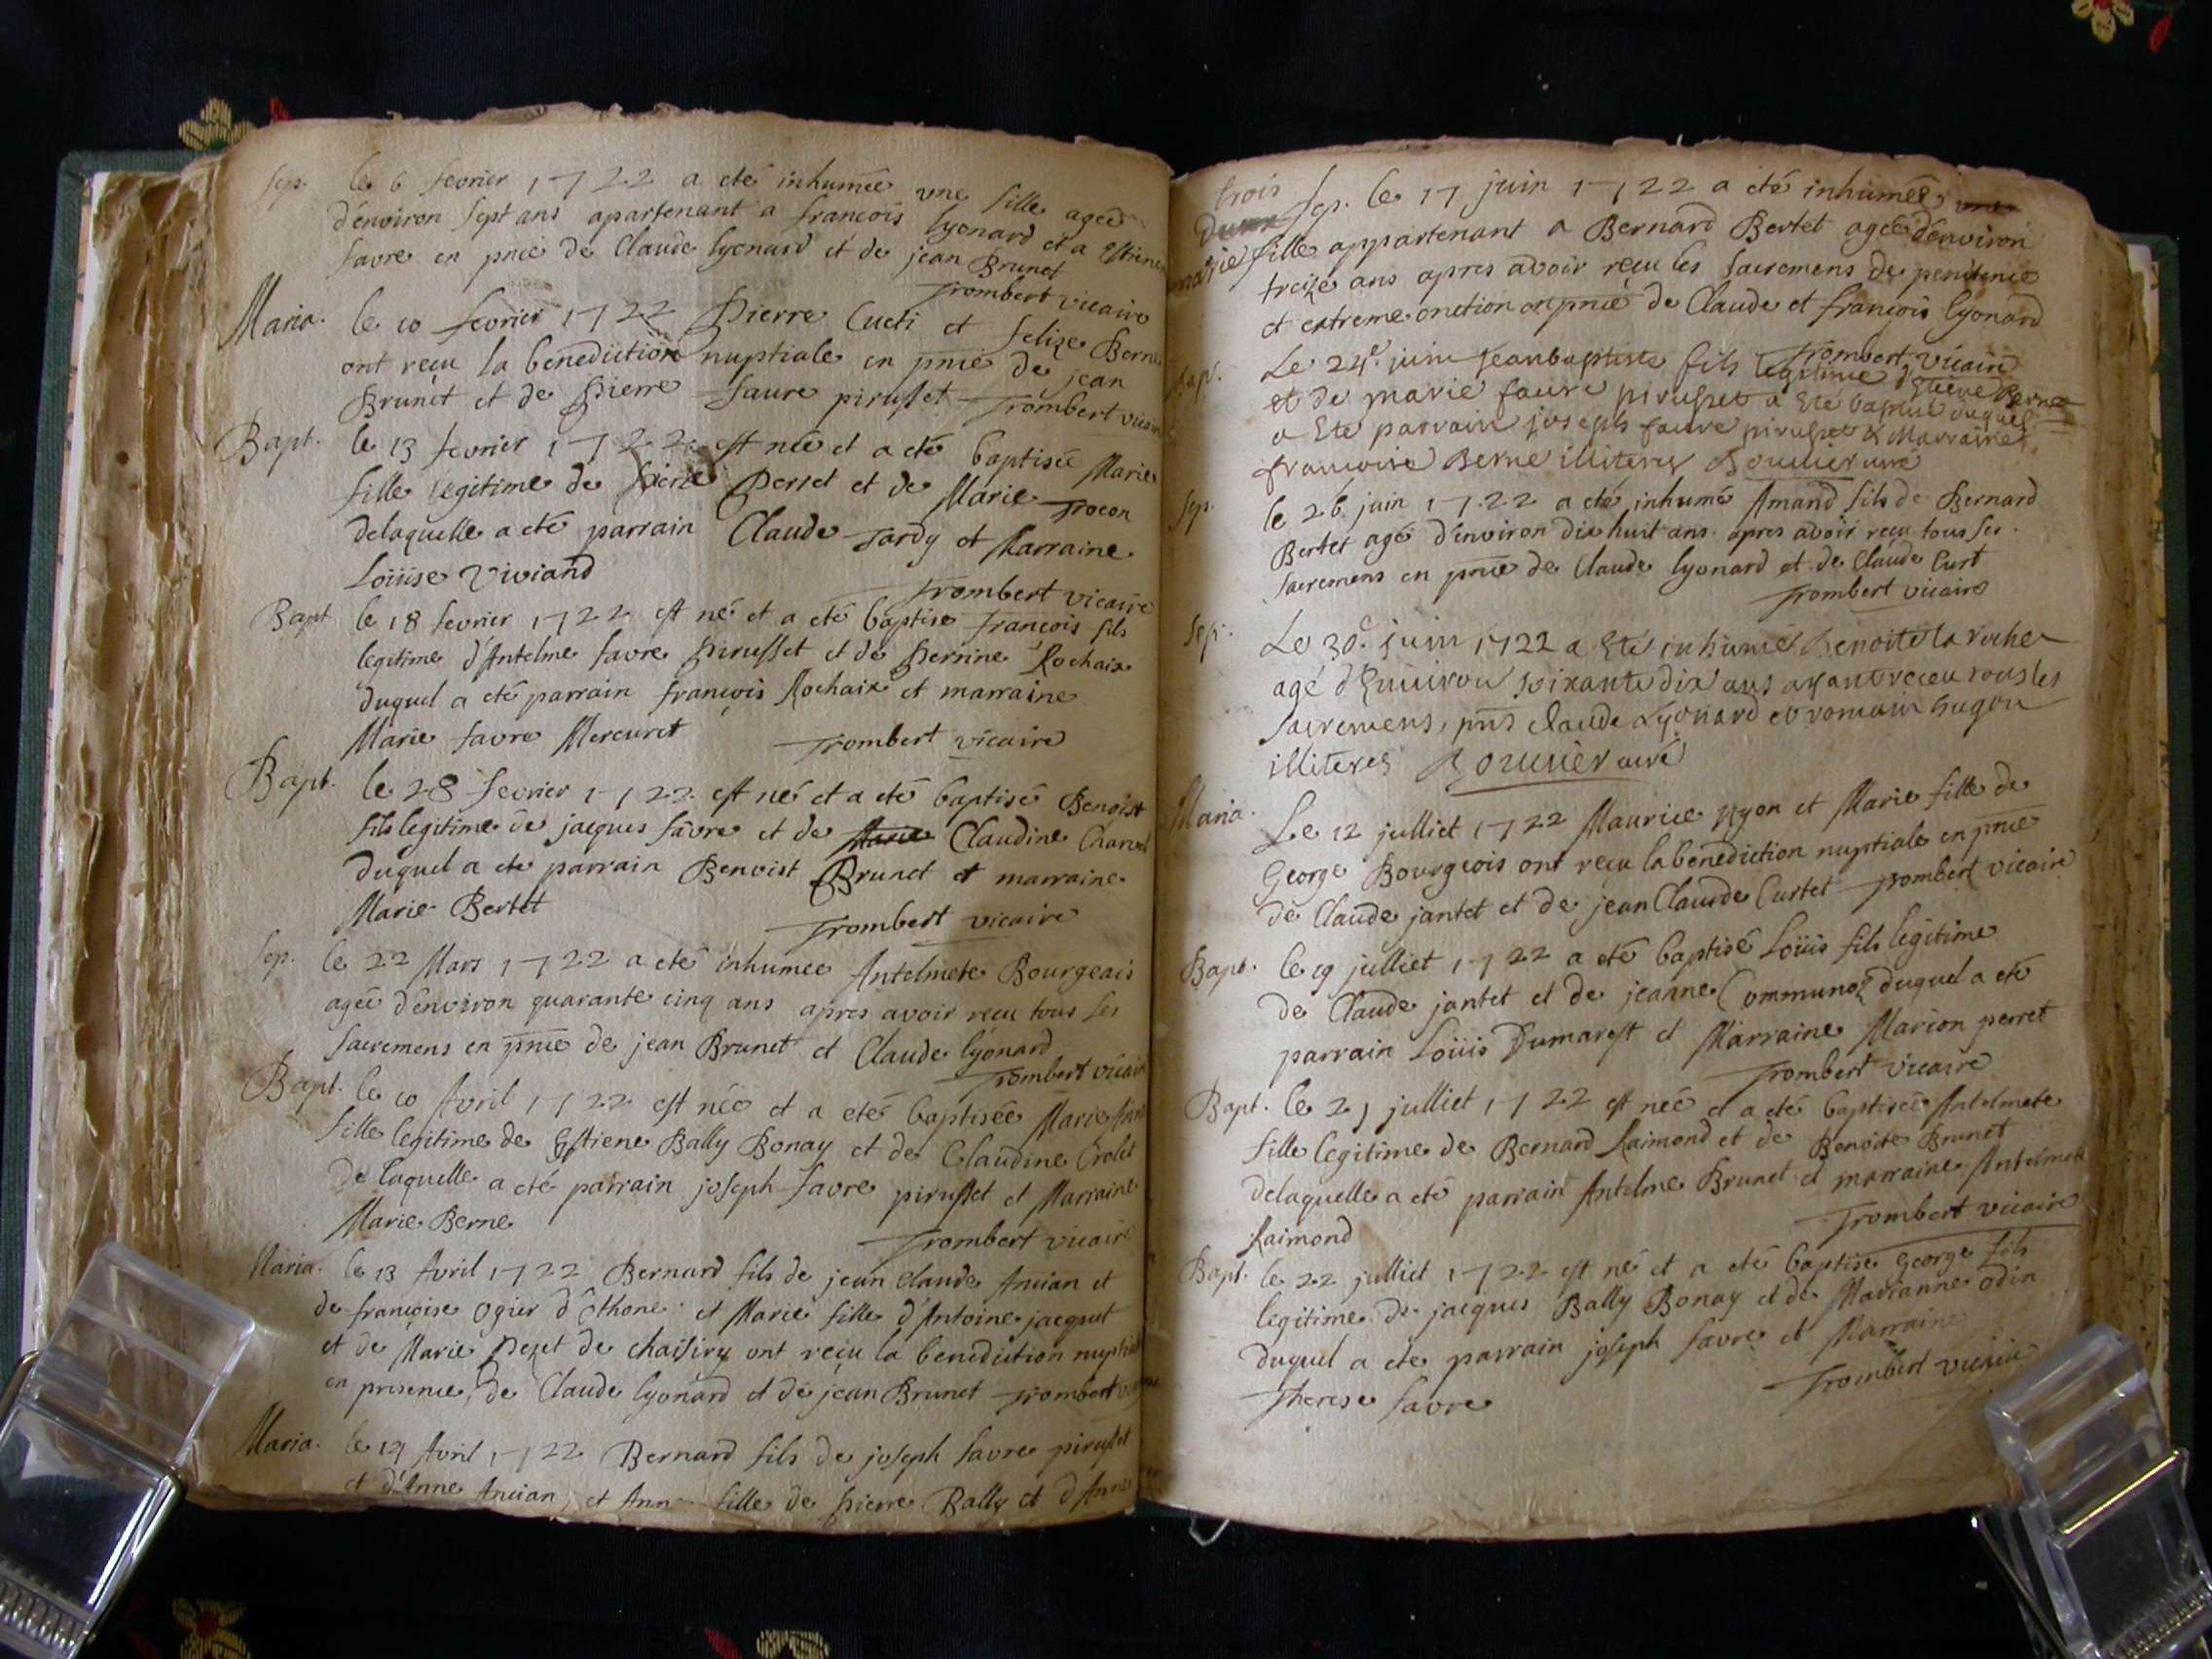 Sep. le 6 fevrier 1722 a eté inhumée une fille agée
d'environ sept ans apartenant a francois lyonard et a
favre en pnce de Claude lyonard et de jean Brunet
Trombert vicaire
Maria. le 10 fevrier 1722 Pierre Cucti et felize Berne
ont reçu la benediction nuptiale en pnce de jean
Brunet et de Pierre faure pirusset Trombert vicaire
Bapt. le 13 fevrier 1722 est née et a eté baptisée Marie
fille legitime de Perret et de Marie Trocon
delaquelle a eté parrain Claude Tardy et Marraine
Loüise Viviand
Trombert vicaire
Bapt le 18 fevrier 1722 est né et a eté baptisé francois fils
legitime d'Antelme favre Pirusset et de Perrine Rochaix
duquel a eté parrain françois Rochaix et marraine
Marie favre Mercuret Trombert vicaire
Bapt. le 28 fevrier 1722 est né et a eté baptisé Benoist
fils legitime de jacques favre et de Marie Claudine Charvet
duquel a eté parrain Benoist Brunet et marraine
Marie Bertet
Trombert vicaire
Sep. le 22 Mars 1722 a eté inhumée Antelmete Bourgeais
agée d'environ quarante cinq ans apres avoir reçu tous ses
sacremens en pnce de jean Brunet et Claude lyonard
Trombert vicaire
Bapt. le 10 Avril 1722 est née et a eté baptisée Marie
fille legitime de Estiene Bally Bonay et de Claudine Crolet
de laquelle a eté parrain joseph favre pirusset et Marraine
Marie Berne
Trombert vicaire
Maria. le 13 Avril 1722 Bernard fils de jean claude Ancian et
de françoise Ogier d'Othone et Marie fille d'Antoine jacquet
et de Marie Pezet de chaisiry ont reçu la benediction nuptiale
en presence de Claude lyonard et de jean Brunet Trombert
Maria. le 14 Avril 1722 Bernard fils de joseph favre pirusset
et d'Anne Ancian, et Ann fille de Pierre Bally et d'Anne
trois
Sep. le 17 juin 1722 a eté inhumée une
marie fille appartenant a Bernard Bertet agée d'environ
treize ans apres avoir reçu les sacremens de penitence
et extreme onction en pnce de Claude et francois lyonard
Trombert vicaire
Bap. Le 24e juin jeanbaptiste fils legitime d'Estiene Berne
et de marie faure pirusset a Eté baptisé duquel
a Eté parrain joseph faure pirusset & Marraine
francoise Berne illiteres Bouuier curé
Sep. le 26 juin 1722 a eté inhumé Amand fils de Bernard
Bertet agé d'environ dix huit ans apres avoir reçu tous ses
sacremens en pnce de Claude lyonard et de Claude Curt
Trombert vicaire
Sep. Le 30e juin 1722 a Eté inhumé Benoite la roche
agé d'Enuiron soixante dix ans ayant receu tous les
sacremens, pnts claude Lyonard et romain hugon
illiteres Bouuier curé
Maria. Le 12 julliet 1722 Maurice Nyon et Marie fille de
George Bourgeois ont reçu la benediction nuptiale en pnce
de Claude jantet et de jean Claude Curtet Trombert vicaire
Bapt. le 19 julliet 1722 a eté baptisé Loüis fils legitime
de Claude jantet et de jeanne Communoz duquel a eté
parrain Loüis Dumarest et Marraine Marion perret
Trombert vicaire
Bapt. le 21 julliet 1722 est née et a eté baptisée Antelmete
fille legitime de Bernard Raimond et de Benoite Brunet
delaquelle a eté parrain Antelme Brunet et marraine Antelmete
Raimond
Trombert vicaire
Bapt. le 22 julliet 1722 est né et a eté baptisé George fils
legitime de jacques Bally Bonay et de Marianne odin
duquel a eté parrain joseph favre et Marraine
Therese favre
Trombert vicaire